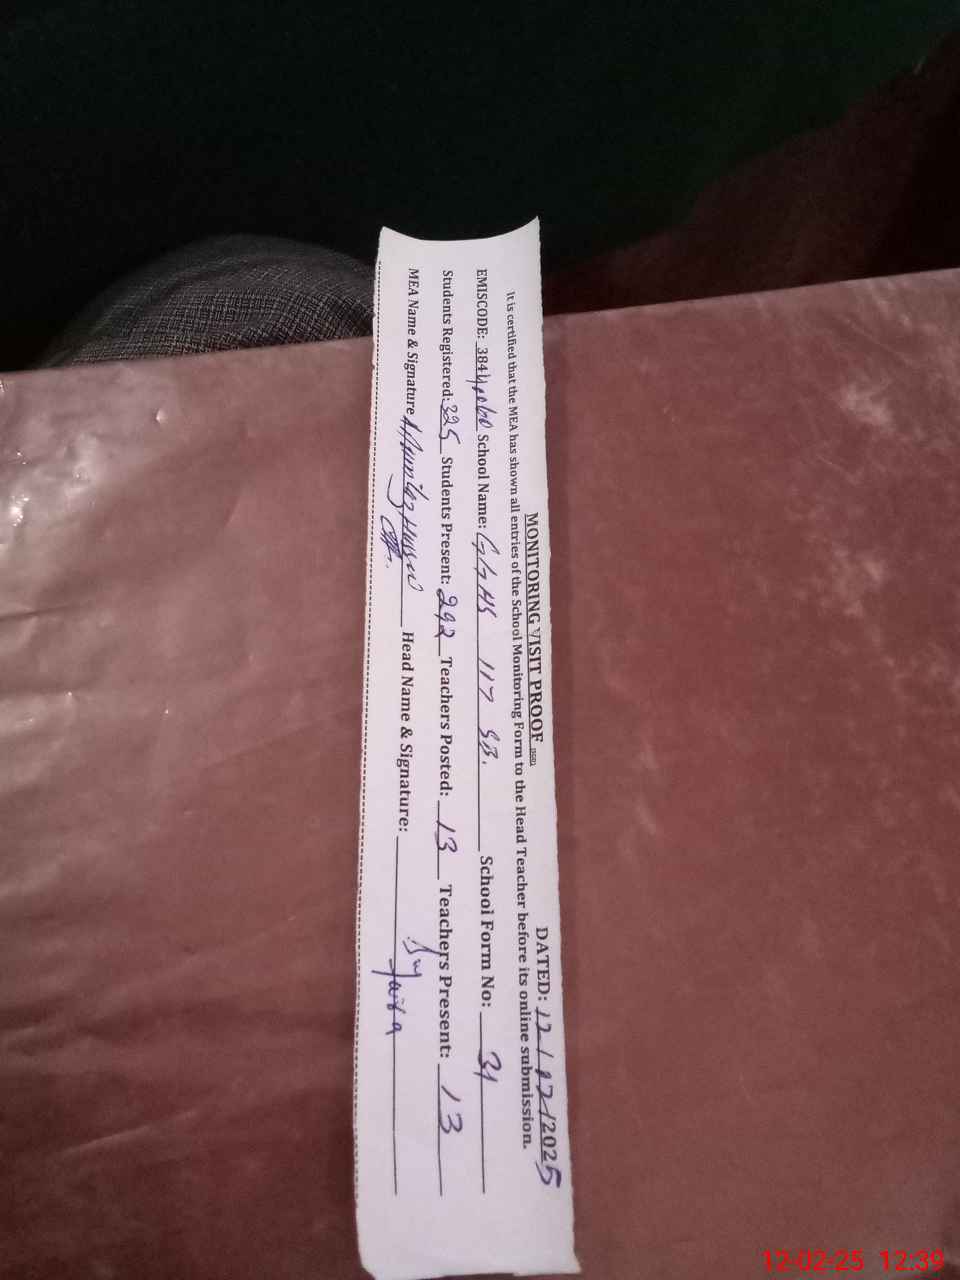 MONITORING VISIT PROOF
DATED: 12/02/2025
It is certified that the MEA has shown all entries of the School Monitoring Form to the Head Teacher before its online submission.
EMISCODE: 38440060 School Name: GGHS 117 SB. School Form No: 31
Students Registered: 325 Students Present: 292 Teachers Posted: 13 Teachers Present: 13
MEA Name & Signature Head Name & Signature:
12-02-25 12:39